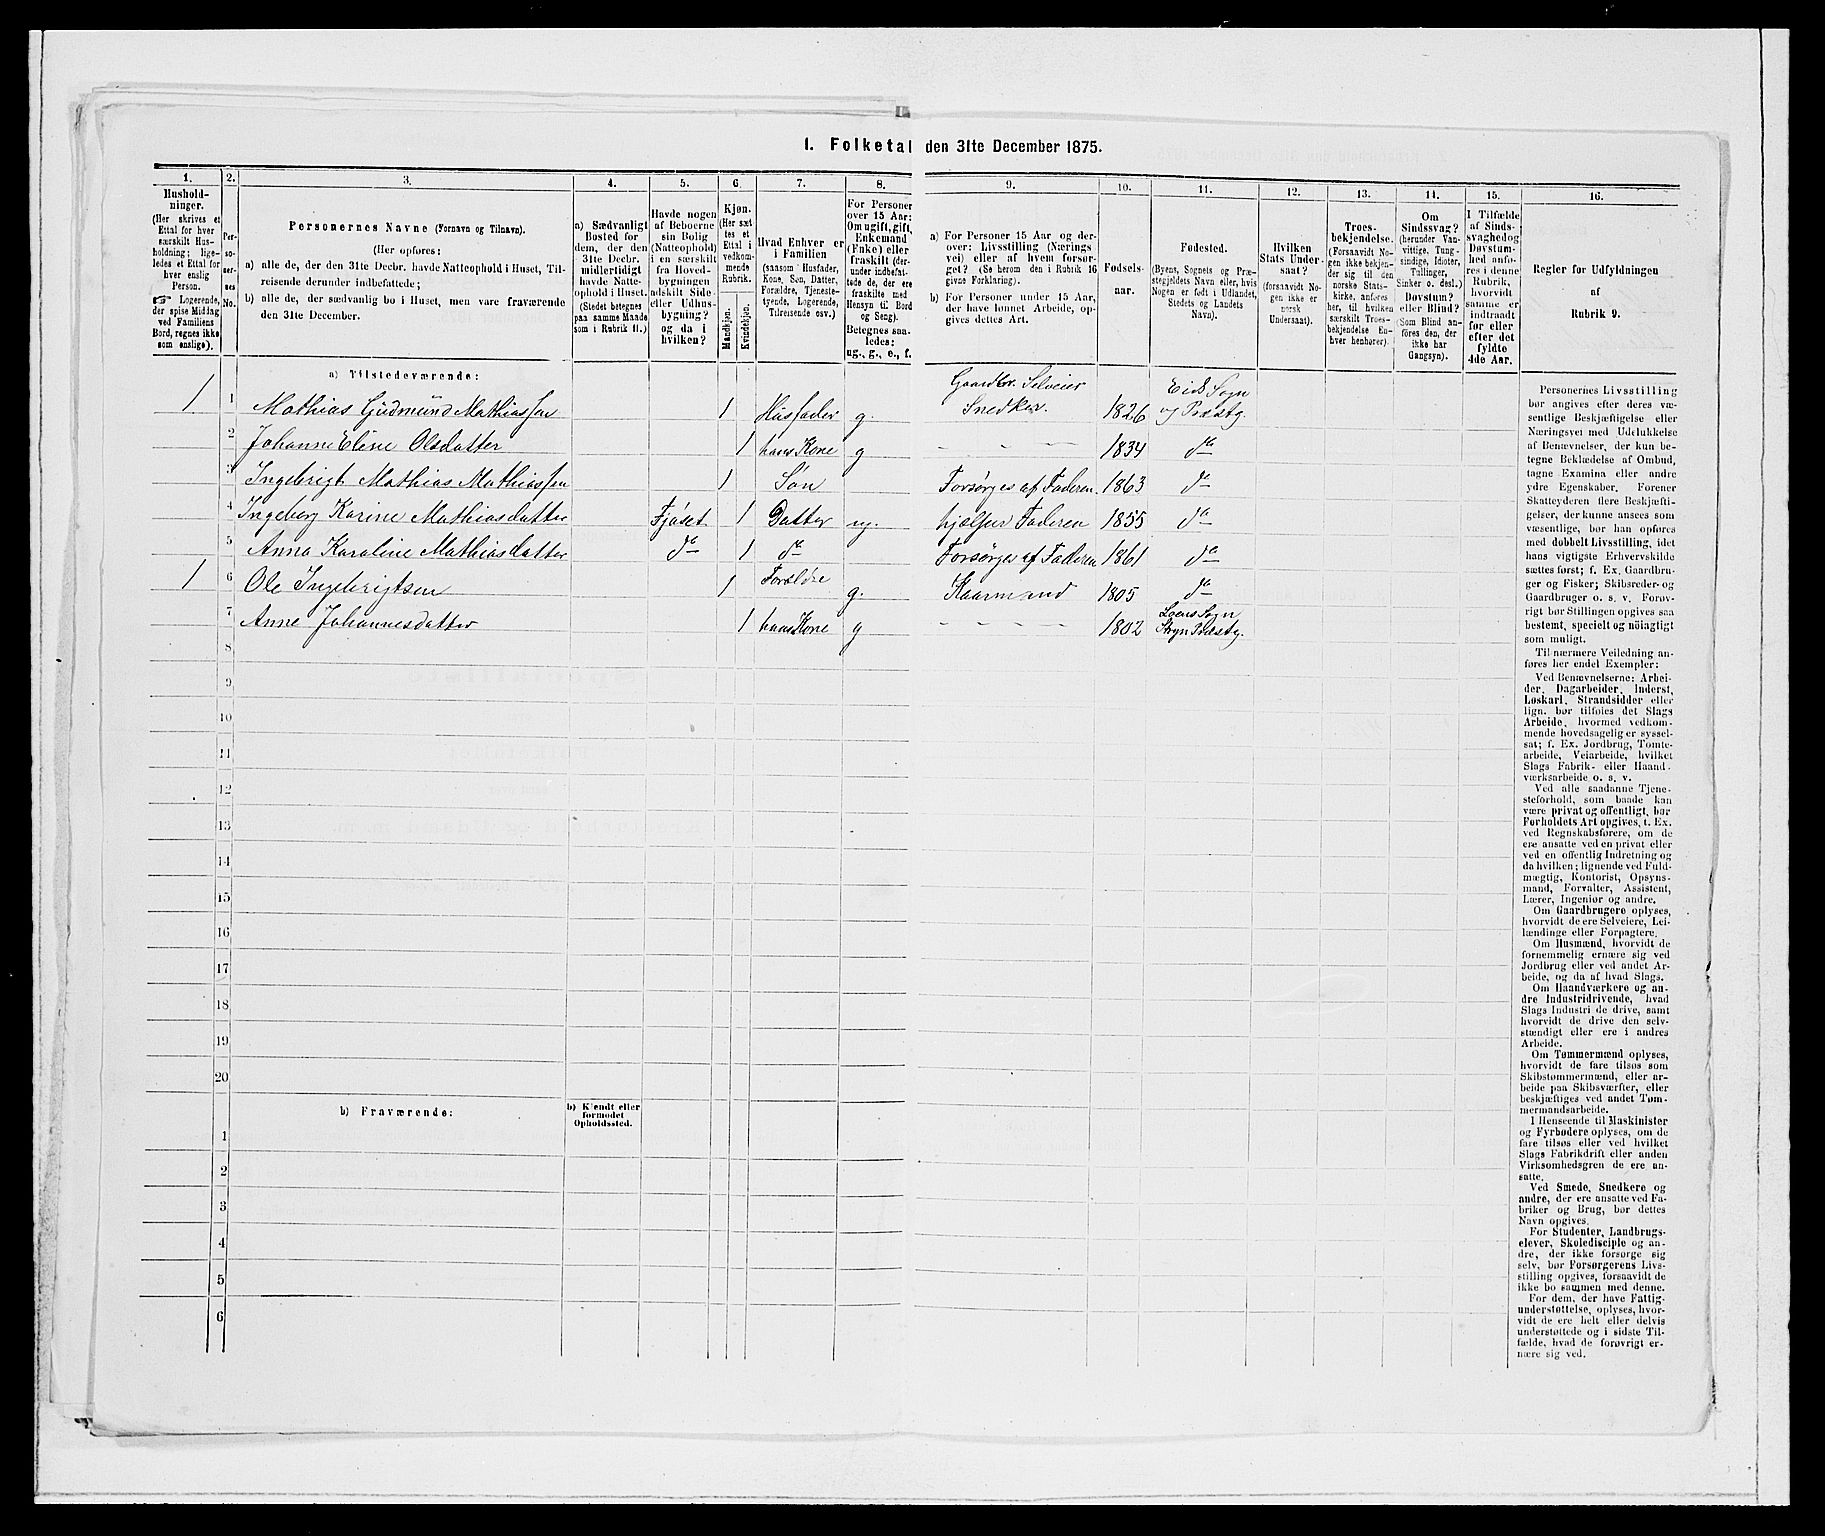 I. Folketal den 31te December 1875.
1.
Hushold-
ninger.
(Her skrives et
Ettal for hver
særskilt Hus-
holdning; lige-
ledes et Ettal for
hver enslig
Person.
☞ Logerende,
der spise Middag
ved Familiens
Bord, regnes ikke
som enslige).
2.
Per-
so-
ner-
nes
No.
3.
Personernes Navne (Fornavn og Tilnavn).
(Her opføres:
a) alle de, der den 31te Decbr. havde Natteophold i Huset, Til-
reisende derunder indbefattede;
b) alle de, der sædvanlig bo i Huset, men vare fraværende
den 31te December.
4.
a) Sædvanligt
Bosted for
dem, der den
31te Decbr.
midlertidigt
havde Natte-
ophold i Huset.
(Stedet betegnes
paa samme Maade
som i Rubrik 11.)
5.
Havde nogen
af Beboerne
sin Bolig
(Natteophold)
i en særskilt
fra Hoved-
bygningen
adskilt Side-
eller Udhus-
bygning?
og da i
hvilken?
6.
Kjøn.
(Her sæt-
tes et
Ettal i
vedkom-
mende
Rubrik.
Mandkjøn.
Kvindekjøn.
7.
Hvad Enhver er
i Familien
(saasom Husfader,
Kone, Søn, Datter,
Forældre, Tjeneste-
tyende, Logerende,
Tilreisende osv.)
8.
For Personer
over 15 Aar:
Om ugift, gift,
Enkemand
(Enke) eller
fraskilt (der-
under indbefat-
tede de, der ere
fraskilte med
Hensyn til Bord
og Seng).
Betegnes saa-
ledes:
ug., g., e., f.
9.
a) For Personer 15 Aar og der-
over: Livsstilling (Nærings-
vei) eller af hvem forsør-
get? (Se herom den i Rubrik 16
givne Forklaring).
b) For Personer under 15 Aar,
der have lønnet Arbeide, op-
gives dettes Art.
10.
Fødsels-
aar.
11.
Fødested.
(Byens, Sognets og Præ-
stegjeldets Navn eller, hvis
Nogen er født i Udlandet,
Stedets og Landets
Navn).
12.
Hvilken
Stats Under-
saat?
(forsaavidt No-
gen ikke er
norsk
Undersaat).
13.
Troes-
bekjendelse.
(Forsaavidt No-
gen ikke bekjen-
der sig til den
norske Stats-
kirke, anføres
her, til hvilken
særskilt Troes-
bekjendelse En-
hver henhører).
14.
Om
Sindssvag?
(herunder Van-
vittige, Tung-
sindige, Idioter,
Tullinger,
Sinker o. desl.)
Døvstum?
eller Blind?
(Som Blind an-
føres den, der
ikke har
Gangsyn).
15.
I Tilfælde
af Sinds-
svaghed og
Døvstum-
hed anfø-
res i denne
Rubrik,
hvorvidt
samme er
indtraadt
før eller
efter det
fyldte
4de Aar.
16.
Regler for Udfyldningen
af
Rubrik 9.
a) Tilstedeværende:
1 1 Mathias Gudmund Mathiassen 1 Husfader g. Gaardbr. Selveier Snedker. 1826 Eids Sogn og Præstg.
2 Johanne Eline Olsdatter 1 hans Kone g - - - 1834 do
3 Ingebrigt Mathias Mathiassen 1 Søn Forsørges af Faderen. 1863 do
4 Ingeborg Karine Mathiasdatter Fjøset 1 Datter ug. hjælper Faderen 1855 do
5 Anna Karoline Mathiasdatter do 1 do Forsørges af Faderen 1861 do
1 6 Ole Ingebrigtsen 1 Forældre g. Kaarmand 1805 do
7 Anne Johannesdatter 1 hans Kone g - - - - 1802 Loens Sogn Stryn Præstg.
8
9
10
11
12
13
14
15
16
17
18
19
20
b) Fraværende:
b) Kjendt eller
formodet
Opholdssted.
1
2
3
4
5
6
Personernes Livsstilling
bør angives efter deres væ-
sentlige Beskjæftigelse eller
Næringsvei med Udelukkelse
af Benævnelser, der kun be-
tegne Beklædelse af Ombud,
tagne Examina eller andre
ydre Egenskaber. Forener
Skatteyderen flere Beskjæfti-
gelser, der kunne ansees som
væsentlige, bør han opføres
med dobbelt Livsstilling, idet
hans vigtigste Erhvervskilde
sættes først; f. Ex. Gaardbru-
ger og Fisker; Skibsreder og
Gaardbruger o. s. v. Forøv-
rigt bør Stillingen opgives saa
bestemt, specielt og nöiagtigt
som muligt.
Til nærmere Veiledning an-
føres her endel Exempler:
Ved Benævnelserne: Arbei-
der, Dagarbeider, Inderst,
Løskarl, Strandsidder eller
lign. bør tilføies det Slags
Arbeide, hvormed vedkom-
mende hovedsagelig er syssel-
sat; f. Ex. Jordbrug, Tomte-
arbeide, Veiarbeide, hvilket
Slags Fabrik- eller Haand-
værksarbeide o. s. v.
Ved alle saadanne Tjene-
steforhold, som baade kan
være privat og offentligt, bør
Forholdets Art opgives, t. Ex.
ved Regnskabsførere, om de
ere ansatte ved en privat eller
ved en offentlig Indretning og
da hvilken; lignende ved Fuld-
mægtig, Kontorist, Opsyns-
mand, Forvalter, Assistent,
Lærer, Ingeniør og andre.
Om Gaardbrugere oplyses,
hvorvidt de ere Selveiere, Lei-
lændinge eller Forpagtere.
Om Husmænd, hvorvidt de
fornemmelig ernære sig ved
Jordbrug eller ved andet Ar-
beide, og da af hvad Slags.
Om Haandværkere og an-
dre Industridrivende, hvad
Slags Industri de drive, samt
hvorvidt de drive den selv-
stændigt eller ere i andres
Arbeide.
Om Tømmermænd oplyses,
hvorvidt de fare tilsøs som
Skibstømmermænd, eller ar-
beide paa Skibsværfter, eller
beskjæftiges ved andet Tøm-
mermandsarbeide.
I Henseende til Maskinister
og Fyrbødere oplyses, om de
fare tilsøs eller ved hvilket
Slags Fabrikdrift eller anden
Virksomhedsgren de ere an-
satte.
Ved Smede, Snedkere og
andre, der ere ansatte ved Fa-
briker og Brug, bør dettes
Navn opgives.
For Studenter, Landbrugs-
elever, Skoledisciple og an-
dre, der ikke forsørge sig
selv, bør Forsørgerens Livs-
stilling opgives, forsaavidt de
ikke bo sammen med denne.
For dem, der have Fattig-
understøttelse, oplyses, hvor-
vidt de ere helt eller delvis
understøttede og i sidste Til-
fælde, hvad de forøvrigt er-
nære sig ved.